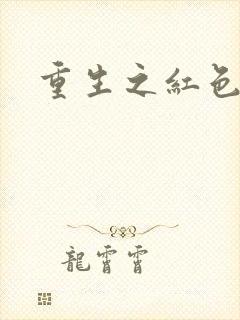 重生之紅色
龍霄霄